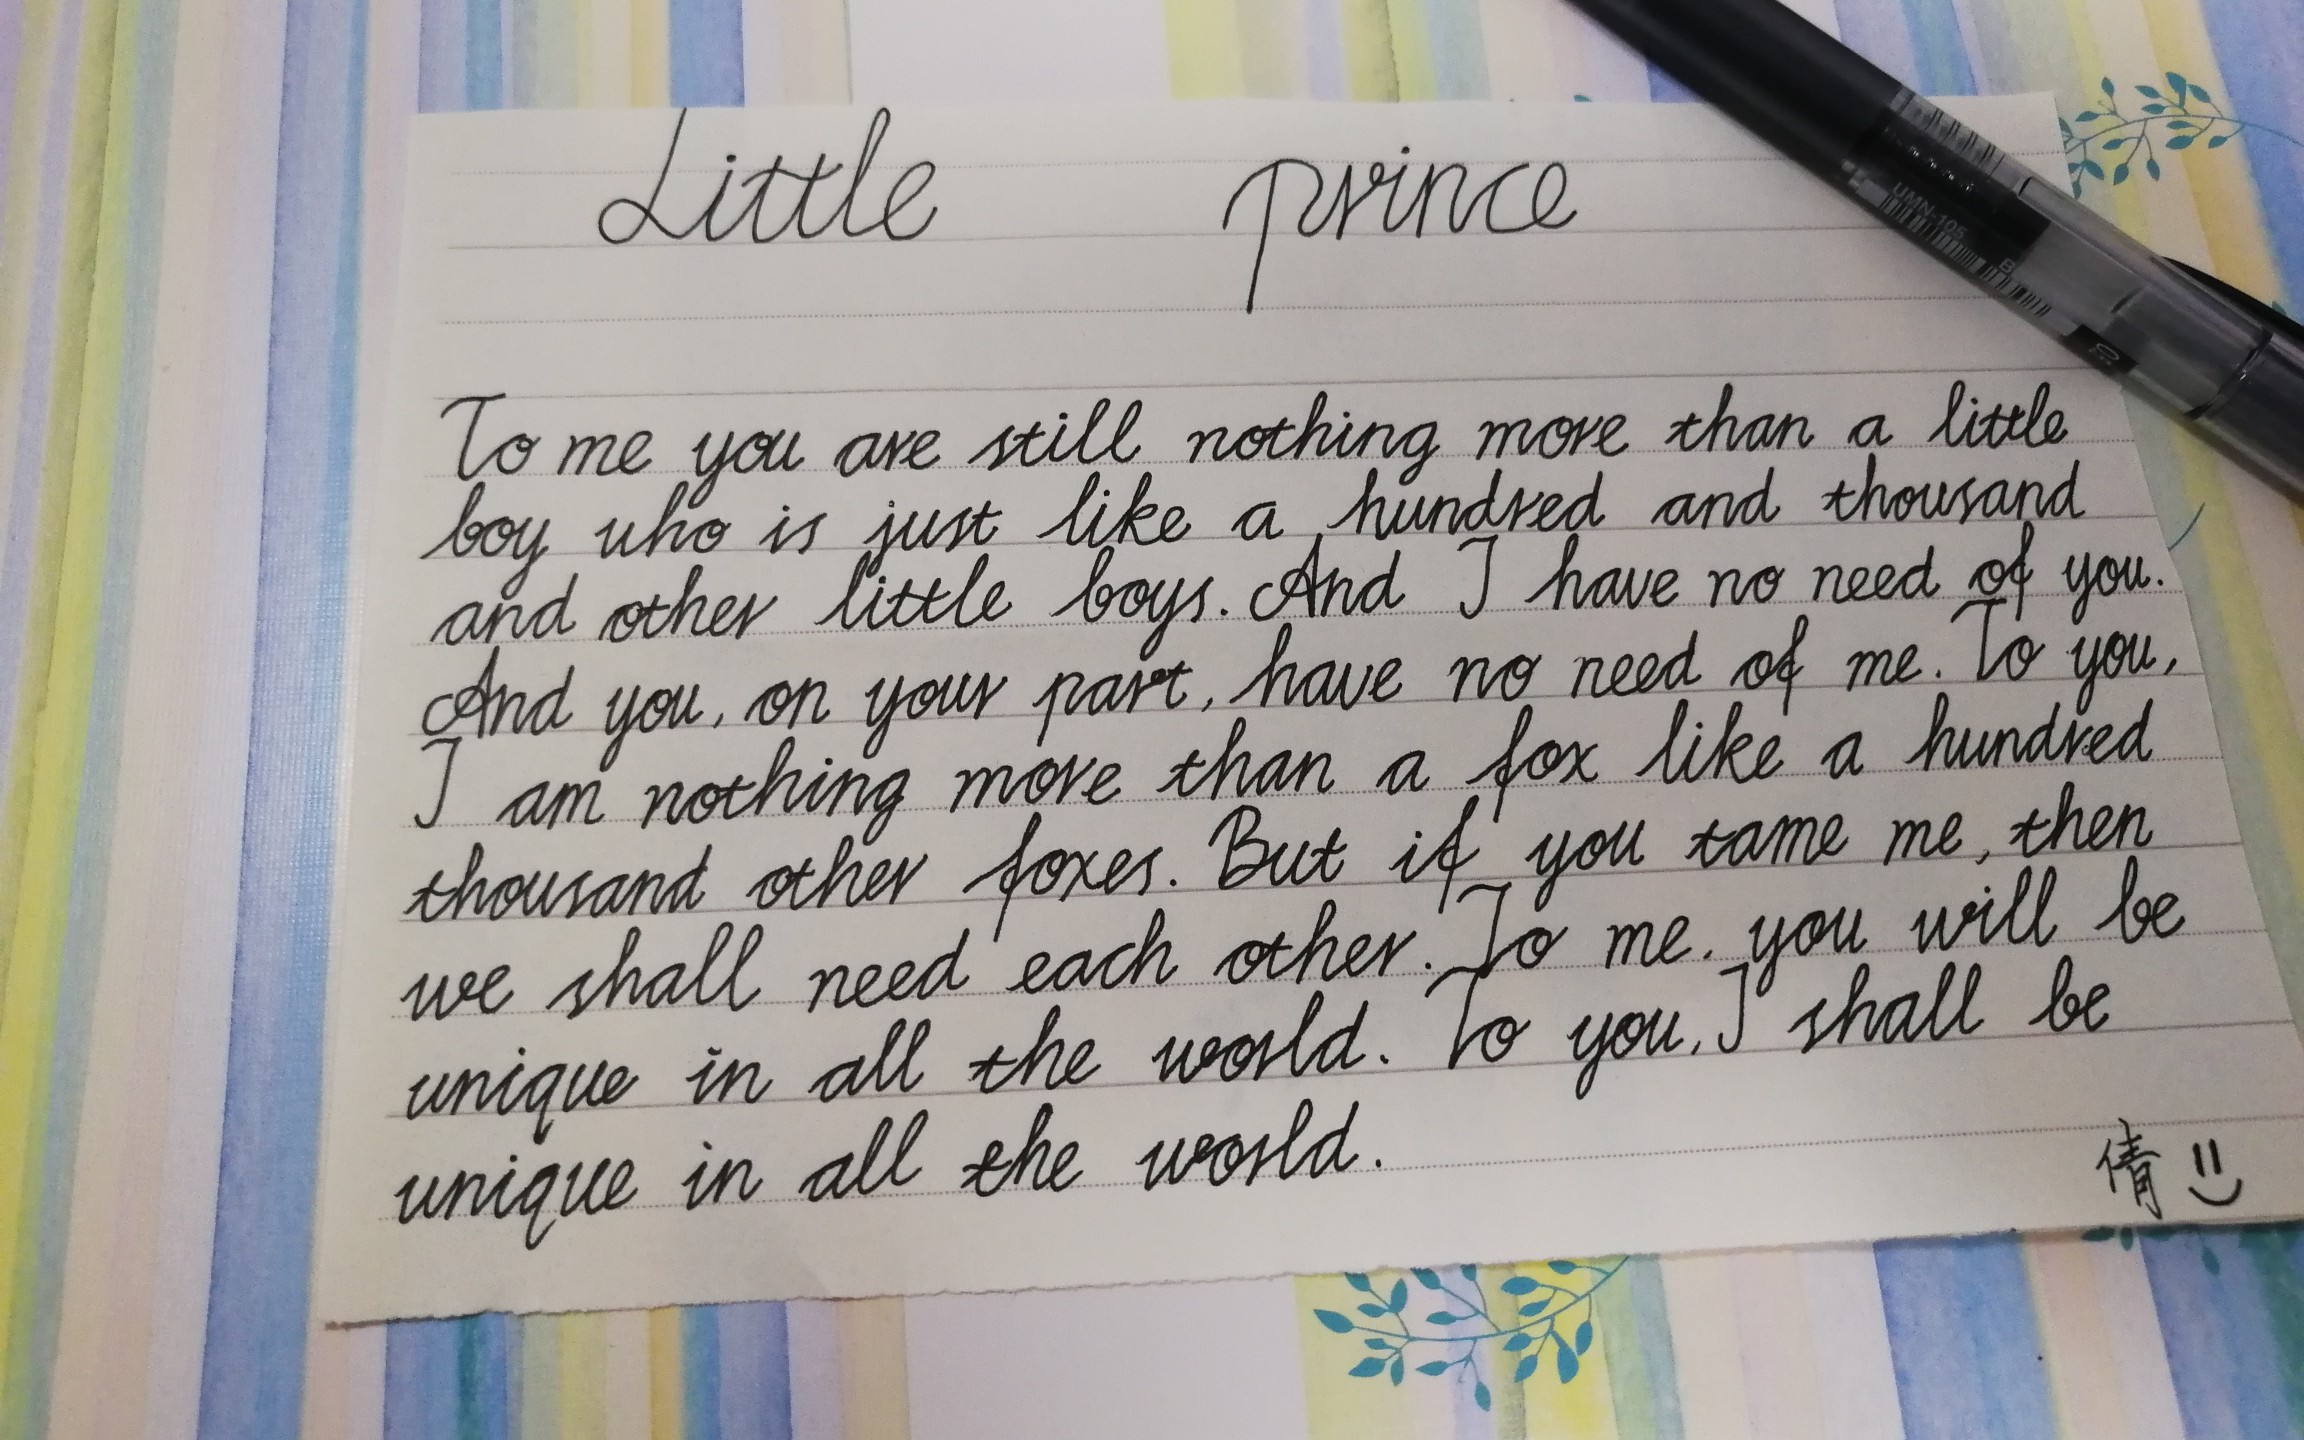 Little prince
To me you are still nothing more than a little
boy who is just like a hundred and thousand
and other little boys. And I have no need of you.
And you, on your part, have no need of me. To you,
I am nothing more than a fox like a hundred
thousand other foxes. But if you tame me, then
we shall need each other. To me, you will be
unique in all the world. To you, I shall be
unique in all the world.
倩
UMN-105